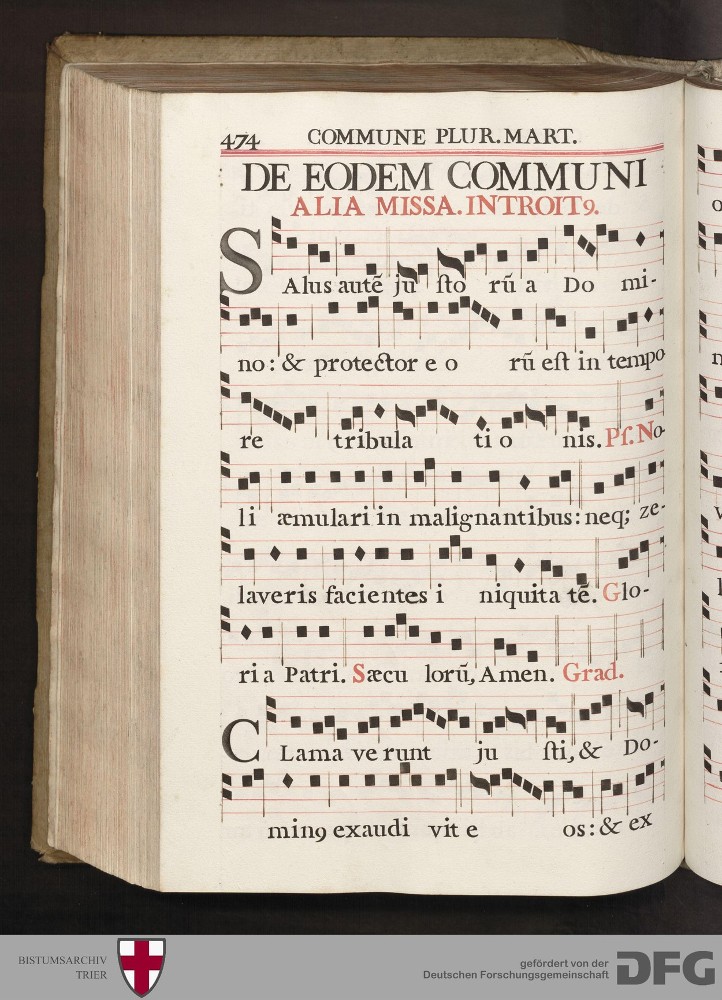 474 COMMUNE PLUR. MART.
DE EODEM COMMUNI
ALIA MISSA. INTROIT9.
SAlus autē ju sto rū a Do mi-
no: & protector e o rū est in tempo
re tribula ti o nis. Ps. No-
li æmulari in malignantibus: neq; ze-
laveris facientes i niquita tē. Glo-
ri a Patri. Sæcu lorū, Amen. Grad.
CLama ve runt ju sti, & Do-
min9 exaudi vit e os: & ex
BISTUMSARCHIV
TRIER
gefördert von der
Deutschen Forschungsgemeinschaft
DFG